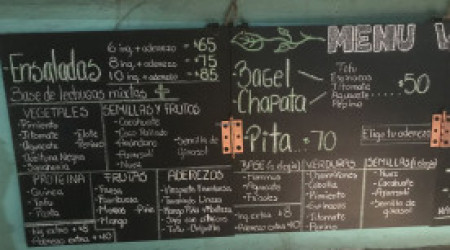 Ensaladas
6 ing. + aderezo - $65
8 ing. + aderezo - $75
10 ing. + aderezo - $85
Base de lechugas mixtas +
VEGETALES
Pimiento
Jitomate
Elote
Aguacate
Pepino
Aceituna Negra
Zanahoria
SEMILLAS Y FRUTOS
Cacahuate
Coco Rallado
Arándano
Ajonjolí
Nuez
Semilla de girasol
PROTEÍNA
Quinoa
Tofu
Pasta
FRUTAS
Fresa
Manzana
Piña
Mango
ADEREZOS
Vinagreta Frambuesa
Mango Piña y Mostaza
Tofu - Chipotle
Ing. extra +$8
Aderezo extra +$10
MENU
Bagel
Chapata
Tofu
Espinacas
Jitomate
Aguacate
Pepino
$50
Pita.. $70
Elige tu aderezo
BASE (a elegir)
Hummus
Aguacate
Frijoles
VERDURAS
Champiñones
Cebolla
Pimiento
Espinacas
Jitomate
Pepino
SEMILLAS (a elegir)
Nuez
Cacahuate
Ajonjolí
Semilla de girasol
Ing extra +$8
Aderezo extra +$10